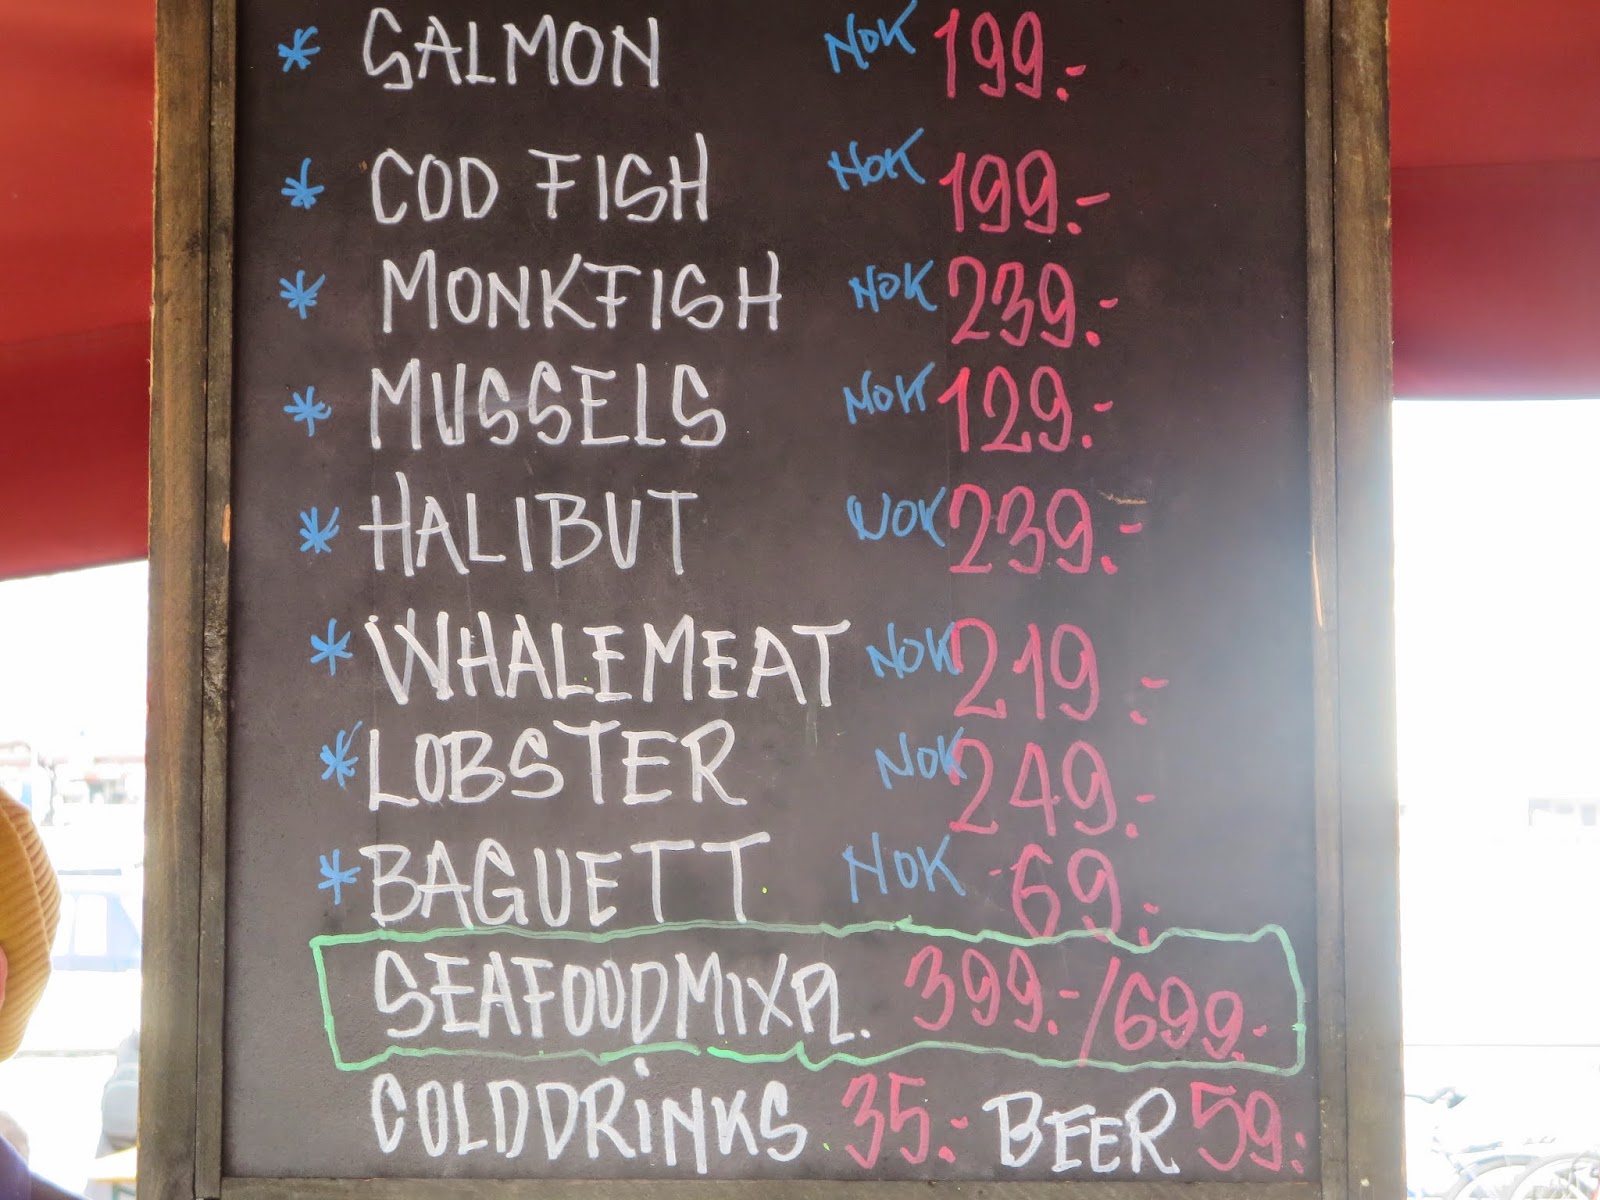 * SALMON NOK 199.-
* COD FISH NOK 199.-
* MONKFISH NOK 239.-
* MUSSELS NOK 129.-
* HALIBUT NOK 239.-
* WHALEMEAT NOK 219.-
* LOBSTER NOK 249.-
* BAGUETT NOK -69.-
SEAFOODMIXPL. 399.-/699.-
COLDDRINKS 35.- BEER 59.-